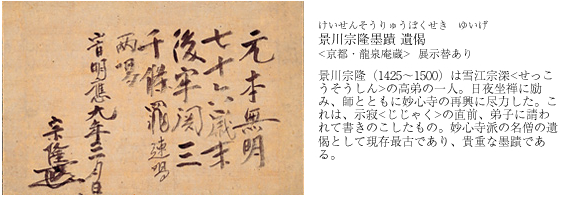 元本無明
七十六歳末
後牢関三
千條罪連喝
両喝
旹明應九年三月日
宗隆
けいせんそうりゅうぼくせき　ゆいげ
景川宗隆墨蹟 遺偈
<京都・龍泉庵蔵>　展示替あり
景川宗隆（1425～1500）は雪江宗深<せっこ
うそうしん>の高弟の一人。日夜坐禅に励
み、師とともに妙心寺の再興に尽力した。こ
れは、示寂<じじゃく>の直前、弟子に請わ
れて書きのこしたもの。妙心寺派の名僧の遺
偈として現存最古であり、貴重な墨蹟であ
る。